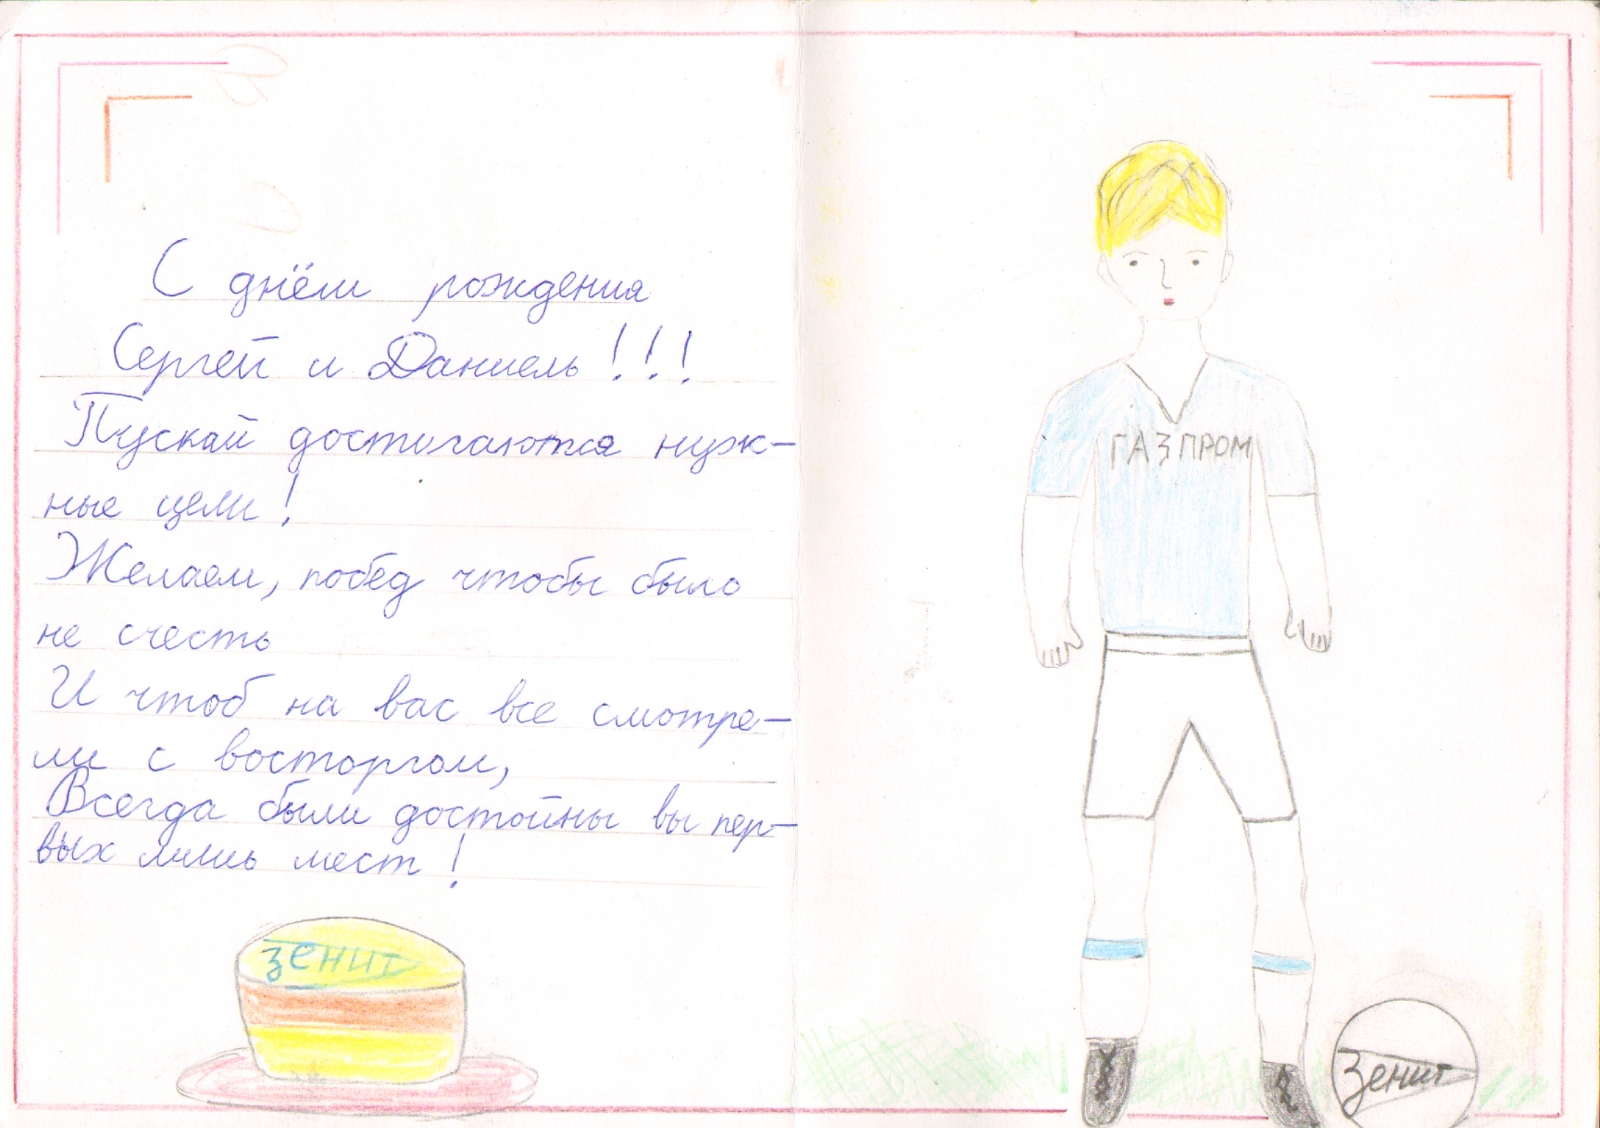 С днём рождения
Сергей и Даниель!!!
Пускай достигаются нуж-
ные цели!
Желаем, побед чтобы было
не счесть
И чтоб на вас все смотре-
ли с восторгом,
Всегда были достойны вы пер-
вых лишь мест!
зенит
ГАЗПРОМ
Зенит